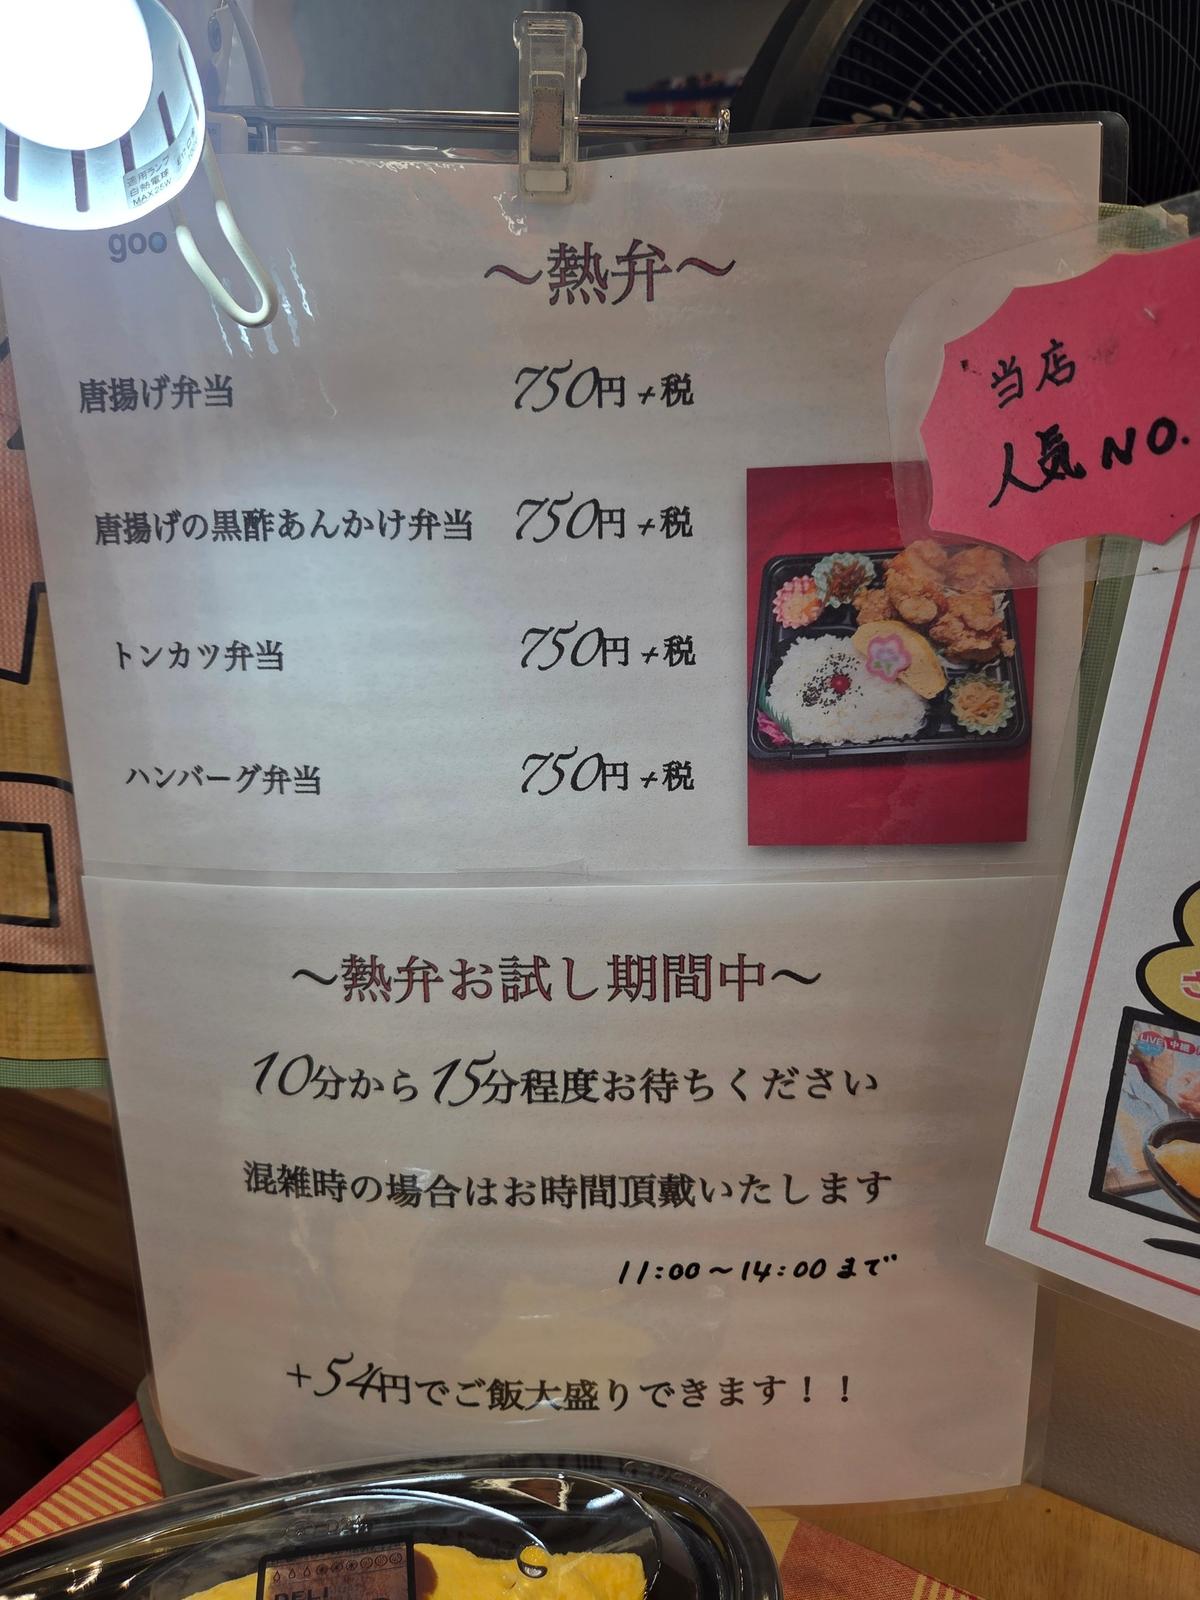 適用ランプ
白熱電球
MAX25W
goo
～熱弁～
唐揚げ弁当 750円+税
唐揚げの黒酢あんかけ弁当 750円+税
トンカツ弁当 750円+税
ハンバーグ弁当 750円+税
当店
人気NO.
～熱弁お試し期間中～
10分から15分程度お待ちください
混雑時の場合はお時間頂戴いたします
11:00～14:00まで
+54円でご飯大盛りできます！！
LIVE
中継
DELI